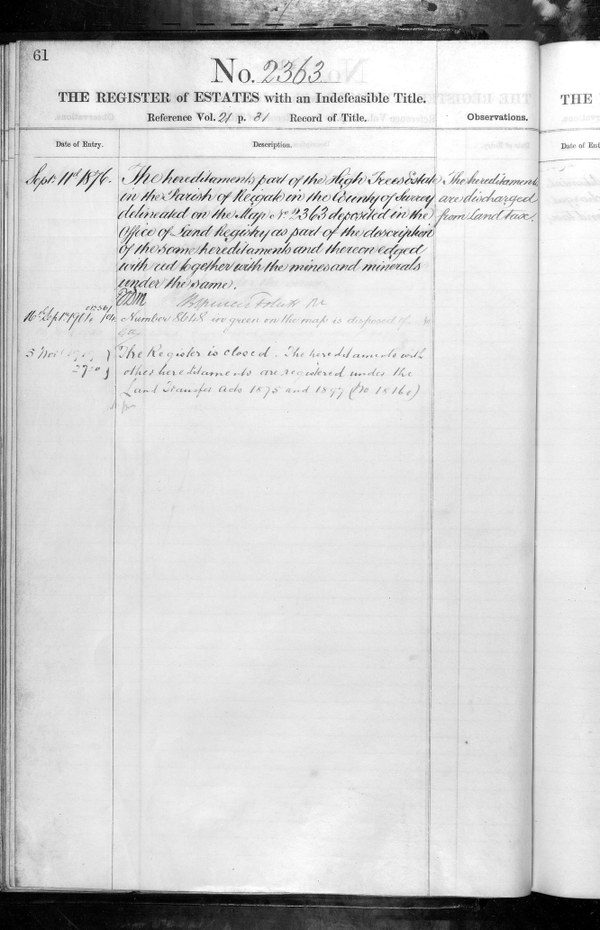 61
No. 2363
THE REGISTER of ESTATES with an Indefeasible Title.
Reference Vol. 21 p. 31 Record of Title.
Observations.
Date of Entry.
Description.
Septr. 11th 1876.
The hereditaments part of the High Trees Estate
in the Parish of Reigate in the County of Surrey
delineated on the Map No 2363 deposited in the
Office of Land Registry as part of the description
of the same hereditaments and thereon edged
with red together with the mines and minerals
under the same.
The hereditaments
are discharged
from Land tax.
Number 8648 in green on the map is disposed of
3 Nov
The Register is closed. The hereditaments with
other hereditaments are registered under the
Land Transfer Acts 1875 and 1897 (No
THE
Date of Ent